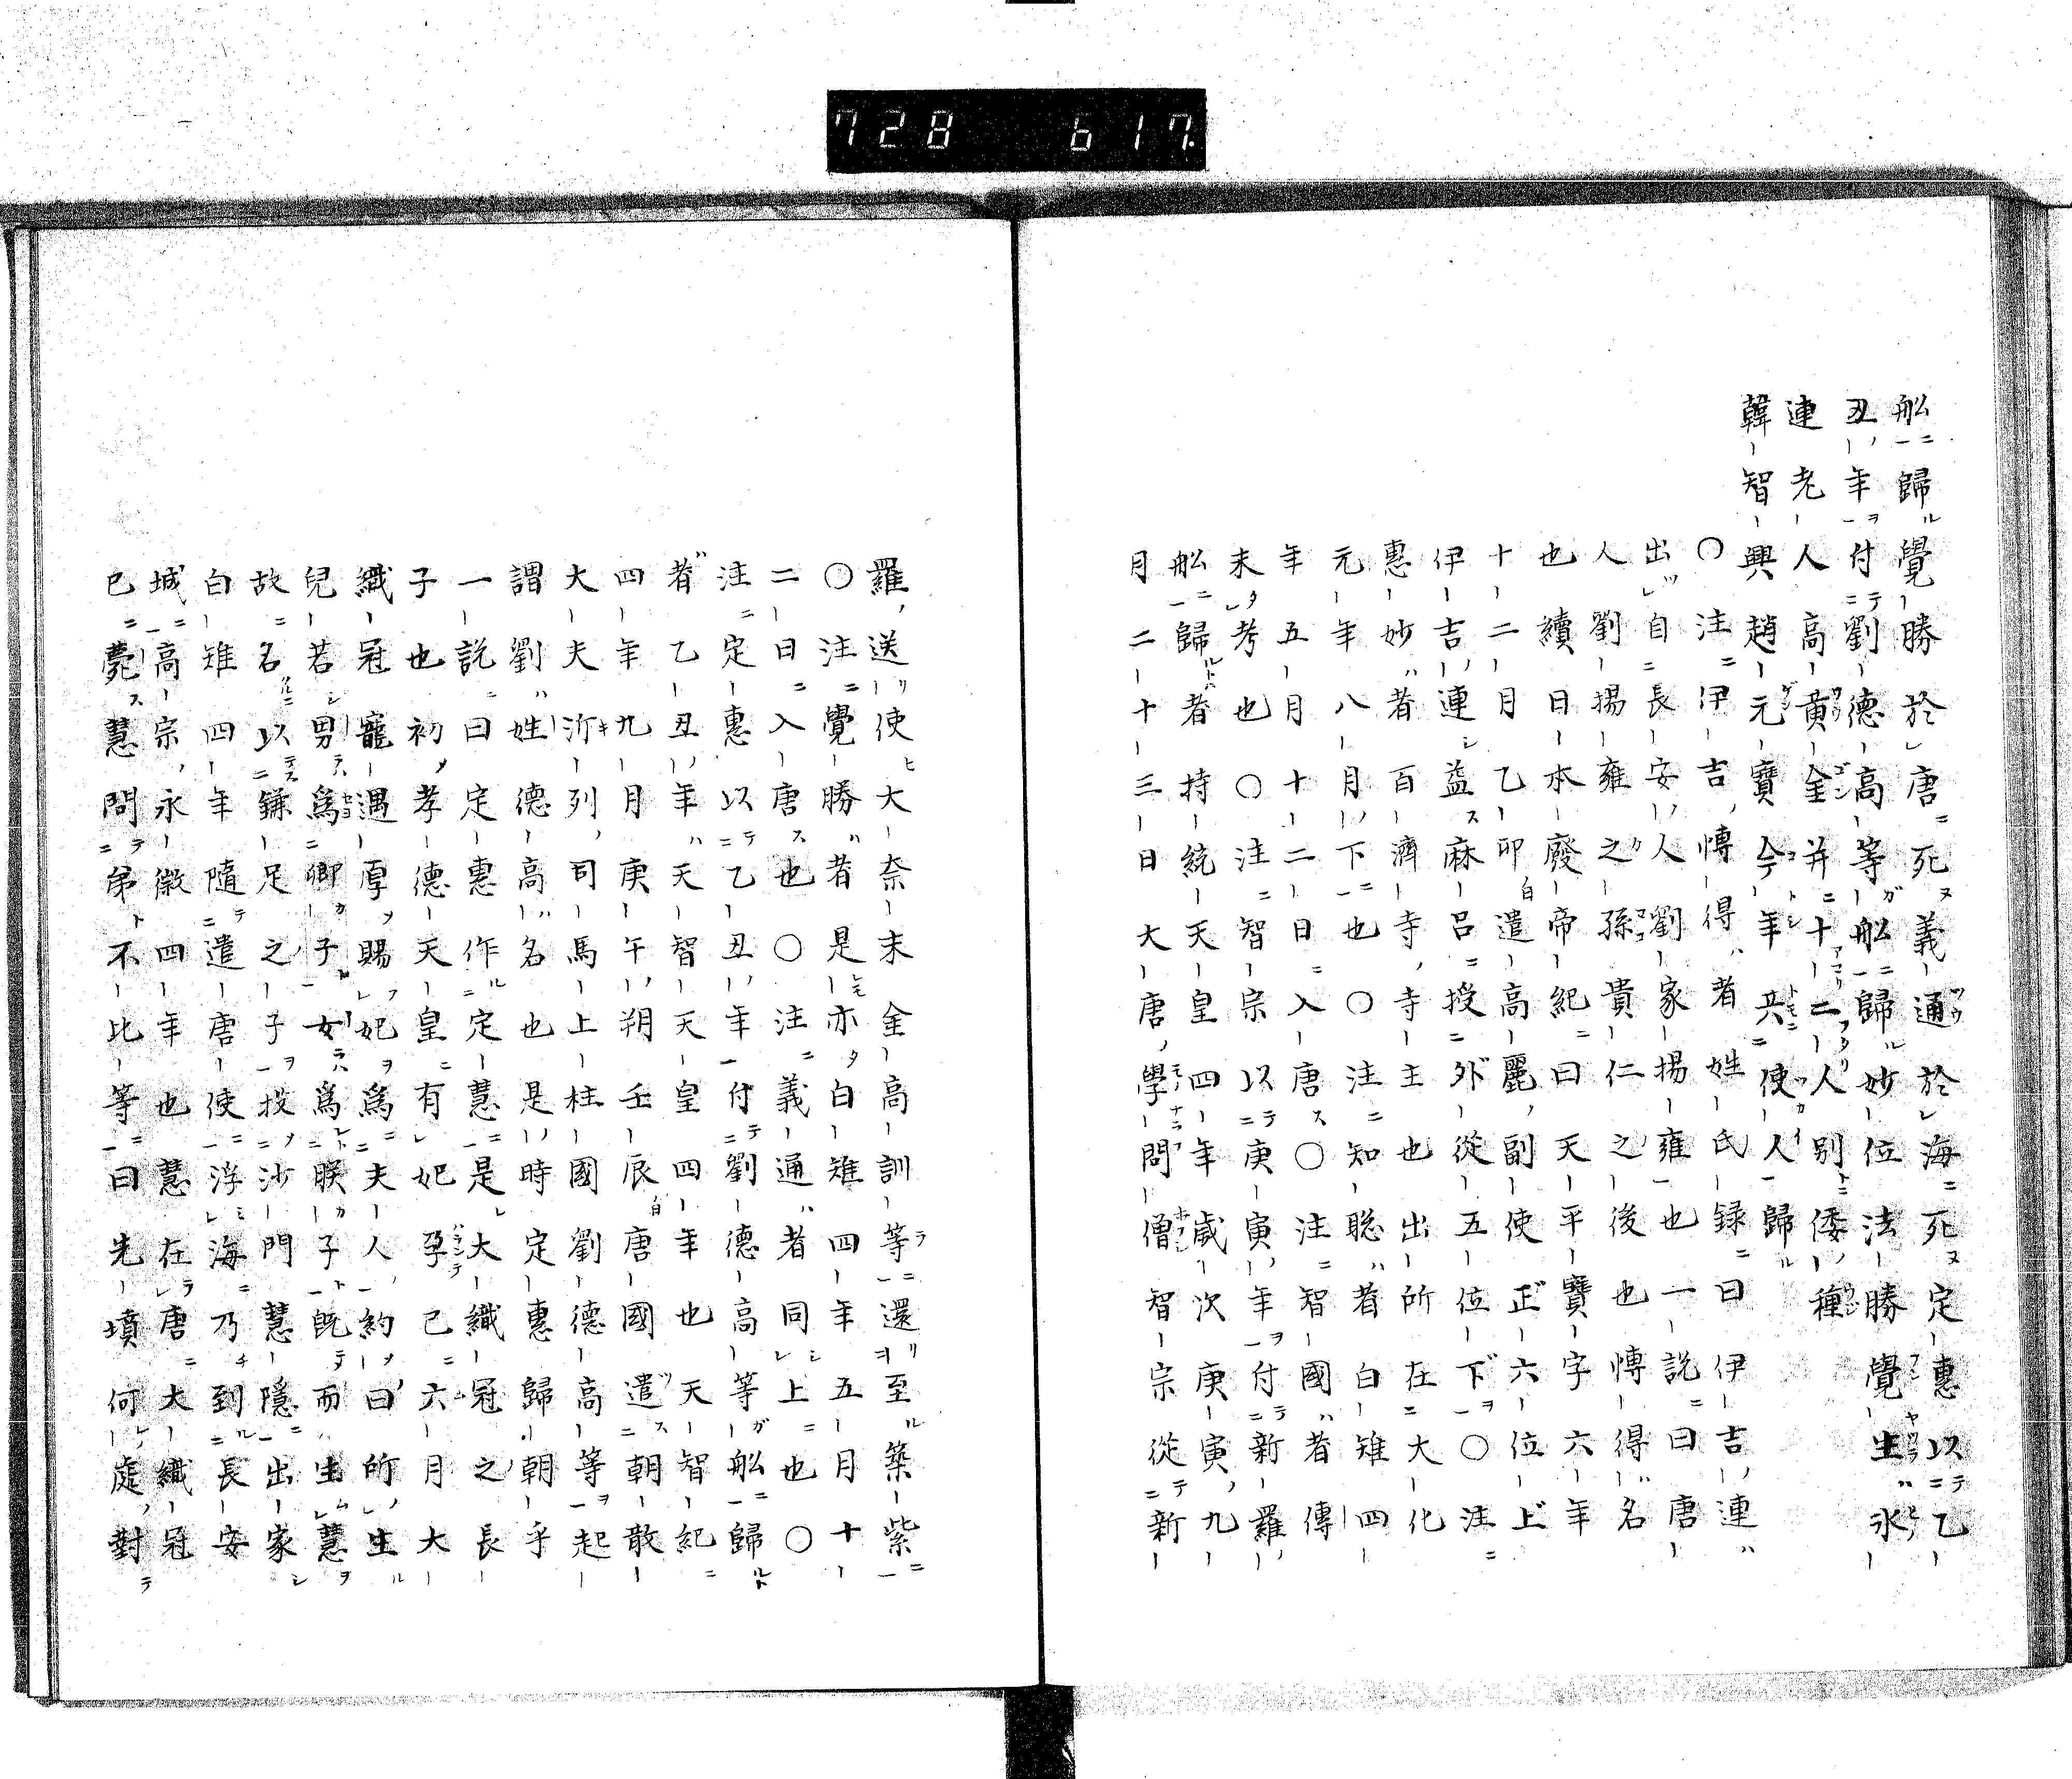 728 617.
舩歸覺勝於唐死義通於海死定惠以乙
丑年付劉德高等舩歸妙位法勝覺生氷
連老人高黄金并十二人別倭種
韓智興趙元寶今年共使人歸
〇注伊吉博得者姓氏録曰伊吉連
出自長安人劉家揚雍也一説曰唐
人劉揚雍之孫貴仁之後也博得名
也續日本廢帝紀曰天平寶字六年
十二月乙卯遣高麗副使正六位上
伊吉連益麻呂授外從五位下〇注
惠妙者百濟寺寺主也出所在大化
元年八月下也〇注知聡者白雉四
年五月十二日入唐〇注智國者傳
未考也〇注智宗以庚寅年付新羅
舩歸者持統天皇四年歳次庚寅九
月二十三日大唐學問僧智宗從新
羅送使大奈末金高訓等還至築紫
〇注覺勝者是亦白雉四年五月十
二日入唐也〇注義通者同上也〇
注定惠以乙丑年付劉德高等舩歸
者乙丑年天智天皇四年也天智紀
四年九月庚午朔壬辰唐國遣朝散
大夫沂列司馬上柱國劉德高等起
謂劉姓德高名也是時定惠歸朝乎
一説曰定惠作定慧是大織冠之長
子也初孝德天皇有妃孕已六月大
織冠寵遇厚賜妃爲夫人約曰所生
兒若男爲卿子女爲朕子既而生慧
故名以鎌足之子投沙門慧隱出家
白雉四年隨遣唐使浮海乃到長安
城高宗永徽四年也慧在唐大織冠
已薨慧問弟不比等曰先墳何處對